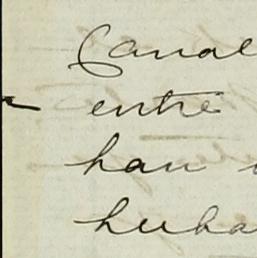 Canal
entre
han
huba